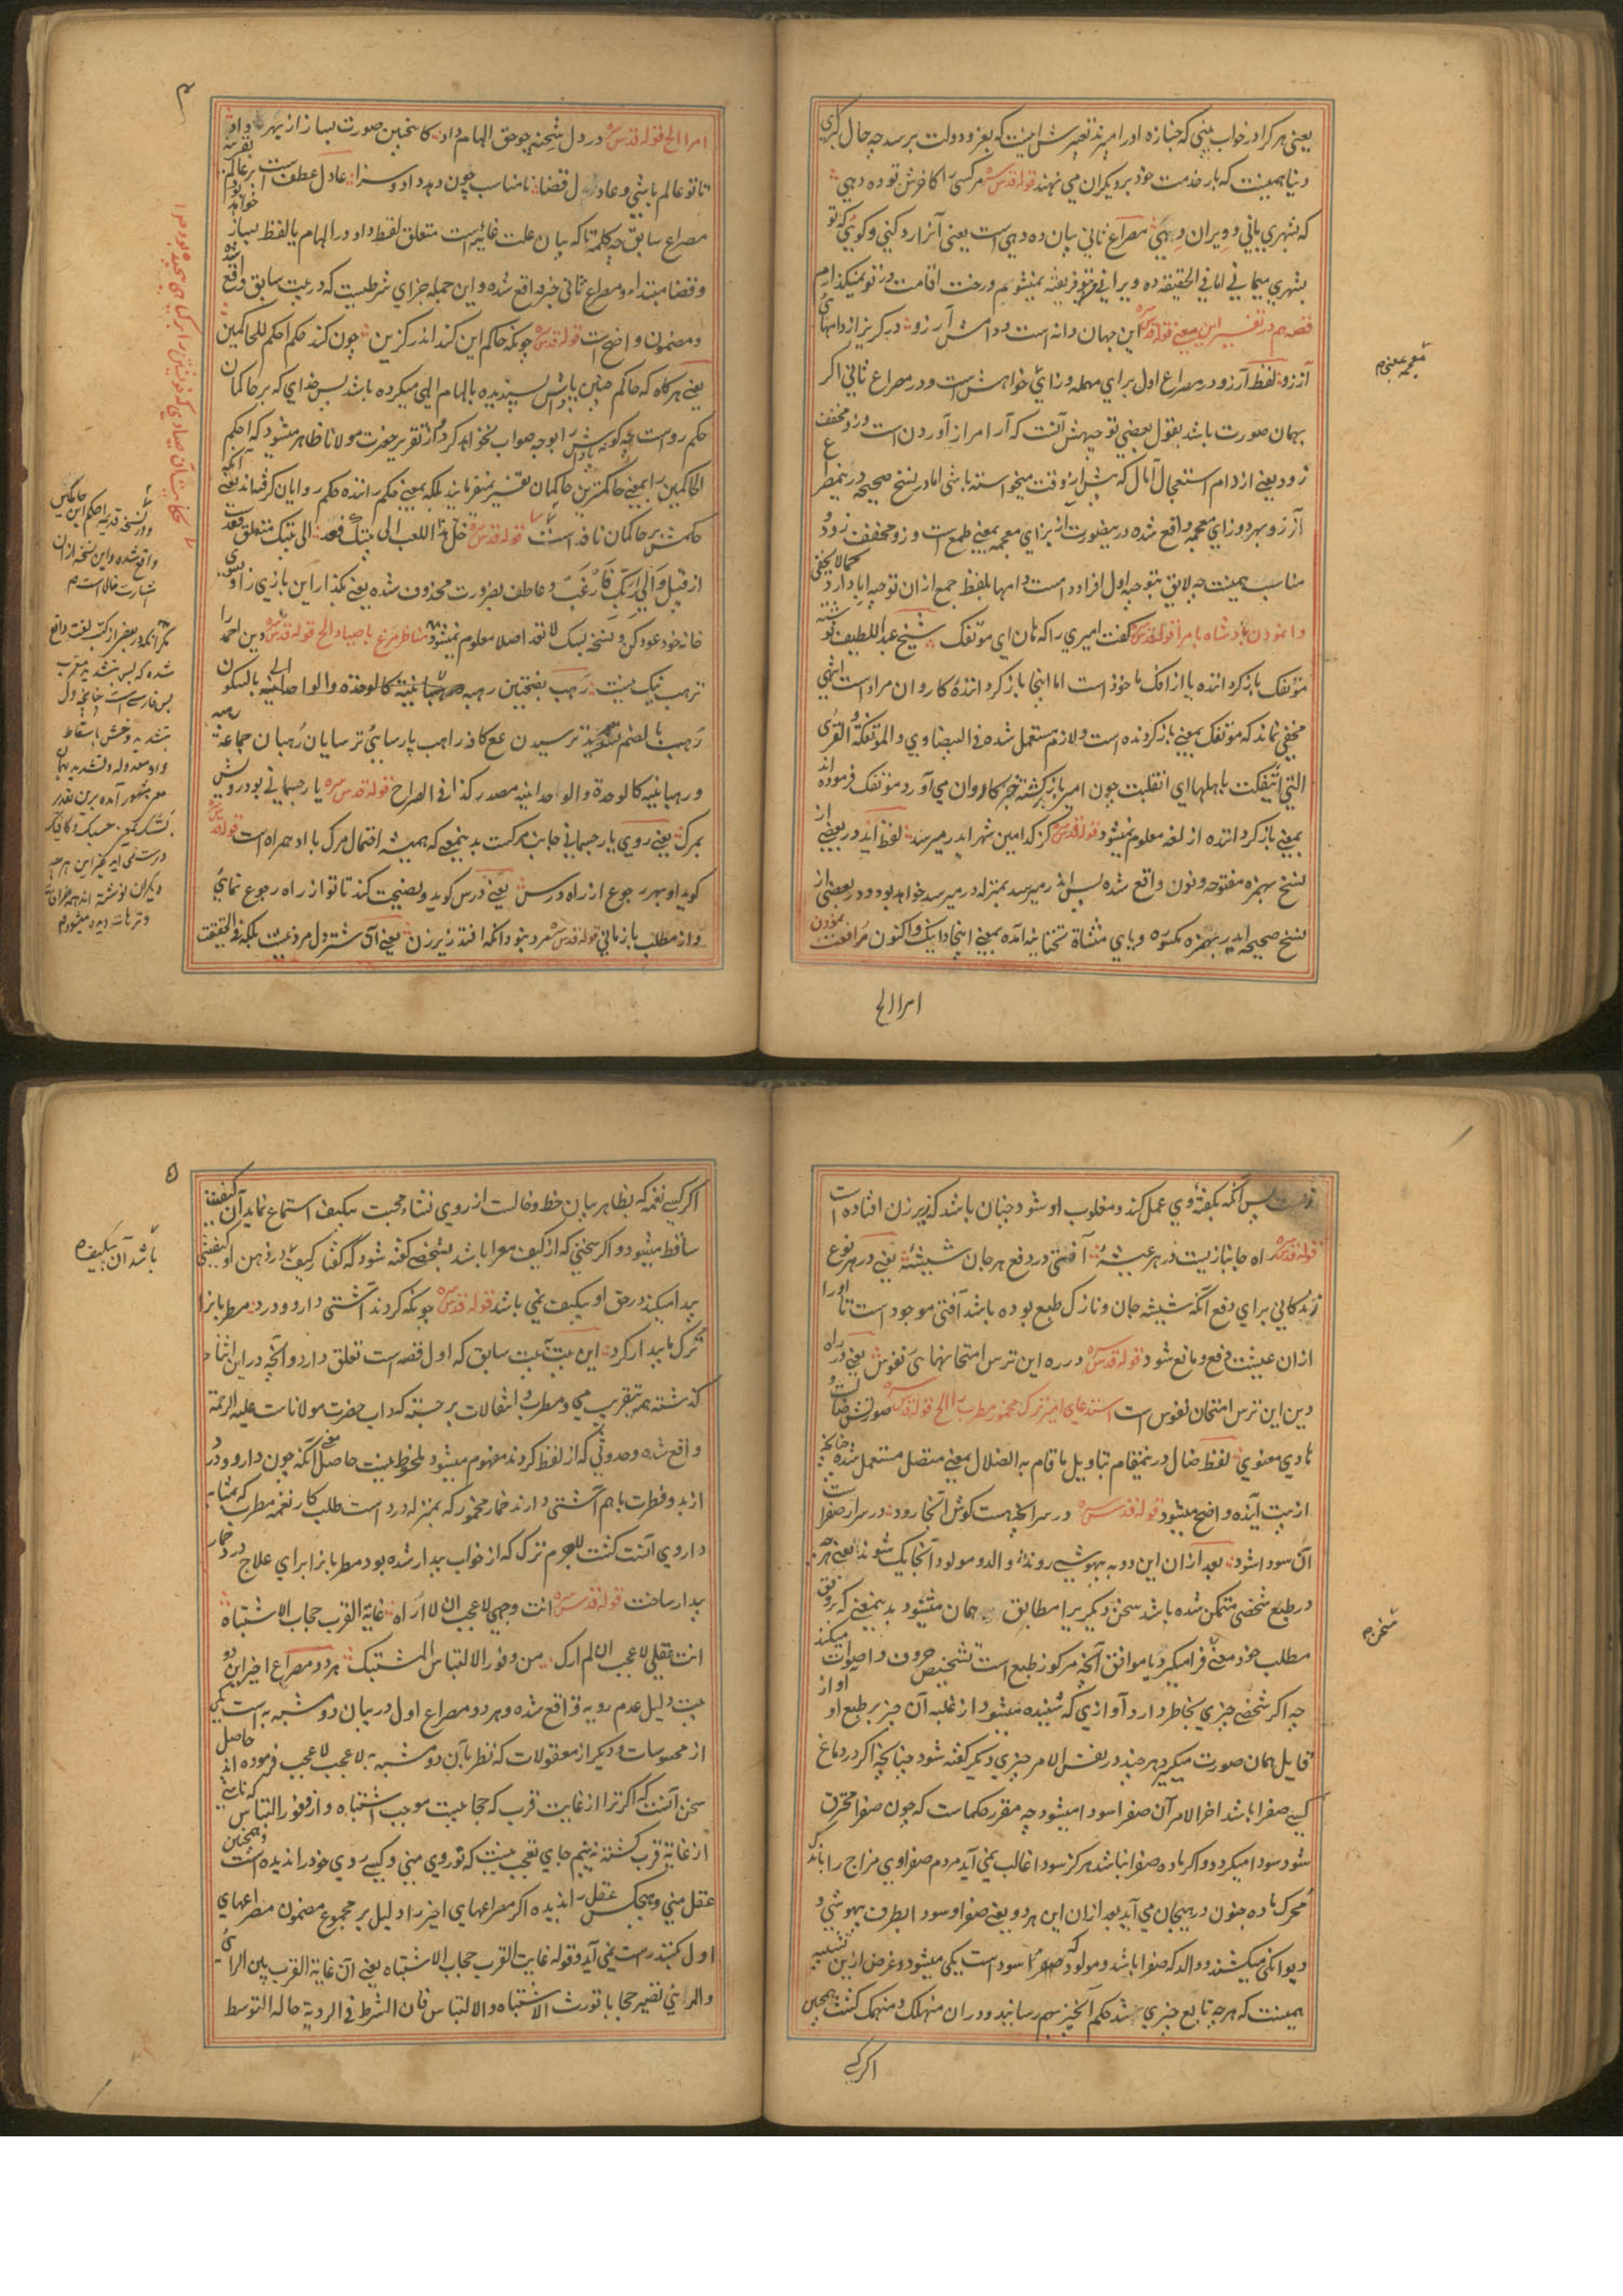 یعنی هر کرا در خواب بینی که جنازه او را میبرند تعبیرش اینست که بعز و دولت برسد چه حال
دنیا همینست که بار خدمت خود بر دیکران می نهند قوله قدس سره مر کسی را کا فرش تو ده دهی
که بشهری یابی و ویران دهی مصراع ثانی بیان ده دهی است یعنی آنرا رد کنی و کویی که تو
بشهری بیمانی اما فی الحقیقه ده ویرانی بتو فریفته نمیشوم و رخت اقامت در تو نمیکذارم
قصه هم در تفسیر این معنی قوله قدس سره این جهان دامست و دانه‌اش آرزو در کریز از دامهای
آز زو لفظ آرزو در مصراع اول برای مهمله و زای خواهش است و در مصراع ثانی اکر
بهمان صورت باشد بقول بعضی توجیهش آنست که آر امر از آوردن است و زو مخفف
زود یعنی از دام استعجال آمال که پیش از وقت میخواسته باشی اما در نسخ صحیحه در ینمصراع
آز زو بهر دو زای معجمه واقع شده در ینصورت آز بزای معجمه بمعنی طمع است و زو مخفف زود
مناسب همینست چه لایق بتوجیه اول افراد دامست و دامها بلفظ جمع ازان توجیه ابا دارد کما لا یخفی
وا نمودن پادشاه بامرا قوله قدس سره کفت امیری را که هان ای مؤتفک شیخ عبد اللطیف نوشته
مؤتفک باز کرداننده یا از افک ماخوذ است اما اینجا باز کرداننده کاروان مراد است انتهی
مخفی نماند که مؤتفک بمعنی باز کردنده است و لازم مستعمل شده فی البیضاوی والمؤتفکة القری
التی ائتفکت باهلها ای انقلبت چون امیر باز کشته خبر کاروان می آورد مؤتفک فرموده اند
بمعنی باز کرداننده از لغه معلوم نمیشود قوله قدس سره کز کدامین شهر اندر میرسد لفظ اند در بعضی از
نسخ بهمزه مفتوحه و نون واقع شده پس اندر میرسد بمنزله در میرسد خواهد بود و در بعضی از
نسخ صحیحه ایدر بهمزه مکسوره و یای مثناة تحتانیه آمده بمعنی اینجا و اینک و اکنون مرافعت نمودن
امرا الخ
معجمه بمعنی م
۴
امرا الخ قوله قدس سره در دل شحنه چو حق الهام داد کاینچنین صورت بساز از بهر داد
تا تو عالم باشی و عادل قضا نا مناسب چون دهد داد و سزا عادل عطف است بر عالم
مصراع سابق چه کلمه تا که بیان علت غائیه است متعلق لفظ داد در الهام یا لفظ بساز
و قضا مبتداء و مصراع ثانی خبر واقع شده و این جمله جزای شرطیست که در بیت سابق واقع شده
و مضمون واضح است قوله قدس سره چونکه حاکم این کند اندر کزین چون کند حکم احکم الحاکمین
یعنی هر کاه که حاکم چنین پاداش پسندیده بالهام الهی میکرده باشد پس خدای که بر حاکمان
حکم رواست چه کونه پاداش را بوجه صواب نخواهد کرد از تقریر حضرت مولانا ظاهر میشود که احکم
الحاکمین را بمعنی حاکمترین حاکمان تفسیر نمیفرمایند بلکه بمعنی حکم راننده حکم روایان کرفته اند یعنی آنکه
حکمش بر حاکمان نافذ است قوله قدس سره خل هذا اللعب الی بیتک فعد الی بیتک متعلق فعد
از قبیل والی ربک فارغب و عاطف بضرورت محذوف شده یعنی بکذار این بازی را و بسوی
خانه خود عود کن و نسخه بسک لا تعد اصلا معلوم نمیشود مناظره مرغ با صیاد الخ قوله قدس سره دین احمد را
ترهب نیک نیست رهب بفتحتین رهبه رهبانیة کالوحدة والواحدانیة بالسکون
رهب بالضم ترسیدن ع کاذ راهب پارسای ترسایان رهبان جماعة
و رهبانیة کالوحدة والواحدانیة مصدر کذا فی الصراح قوله قدس سره یار جسمانی بود رویش
بمرک یعنی روی یار جسمانی جانب مرکست بدینمعنی که همیشه احتمال مرک با او همراه است قوله قدس سره
کوید او بهر رجوع از راه درس یعنی درس کوید و نصیحت کند تا تو از راه رجوع نمایی
و از مطلب باز مانی قوله قدس سره مرد نبود آنکه افتد زیر زن یعنی آن شتر دل مرد نیست بلکه فی الحقیقت
و در نسخه قدیمه احکم این حاکمین
واقع شده و این نسخه ازان
اشارت خالی است م
مکر آنکه در بعضی از کتب لغت واقع
شده که بس بتشدید معرب
بس فارسی است چنانچه اول
بتشدید و خش باسقاط
واو معدوله و تشدید بهمان
معنی مشهور آمده برین تقدیر
درست می آید بغیر این هر چه
دیکران نوشته اند همه خرافات
و ترهات دیده میشود م
زنست پس آنکه بکفته وی عمل کند و مغلوب او شود چنان باشد که زیر زن افتاده است
قوله قدس سره راه جانبازیست در هر عیشه آفتی در دفع هر جان شیشه یعنی در هر نوع
زندکانی برای دفع آنکه شیشه جان و نازک طبع بوده باشد آفتی موجود است تا او را
ازان عیشت دفع و مانع شود قوله قدس سره در ره این ترس امتحانهای نفوس یعنی در راه
دین این ترس امتحان نفوس است استدعای امیر ترک مخمور مطرب را الخ قوله قدس سره صورتش ضالست و
هادی معنوی لفظ ضال در ینمقام بتاویل ما قام به الضلال بمعنی متضل مستعمل شده چنانچه
از بیت آینده واضح میشود قوله قدس سره در سر آنچه هست کوش آنجا رود در سر ار صفراست
آن سودا شود بعد ازان این دو به بیهوشی روند والد و مولود آنجا یک شوند یعنی هر چه
در طبع شخصی متمکن شده باشد سخن دیکریرا مطابق همان میشنود بدینمعنی که بر وفق
مطلب خود معنی فرا میکیرد یا موافق آنچه مرکوز طبع است تشخیص حروف و اصوات میکند
چه اکر شخصی چیزی بخاطر دارد آوازی که شنیده میشود از غلبه آن چیز بر طبع او آواز
قایل همان صورت میکیرد هر چند در نفس الامر چیزی دیکر کفته شود چنانچه اکر در دماغ
کسی صفرا باشد آخر الامر آن صفرا سودا میشود چه مقرر حکماست که چون صفرا محترق
شود سودا میکردد و اکر ماده صفرا نباشد هرکز سودا غالب نمی آید مردم صفراوی مزاج را باندک
محرک ماده جنون در هیجان می آید بعد ازان این هر دو یعنی صفرا و سودا بطرف بیهوشی و
دیوانکی میکشند و والد که صفرا باشد و مولود که سودا است یکی میشود و غرض ازین تشبیه
همینست که هر چه تابع چیزی شد حکم آنچیز بهم رسانید و دران منهلک و منهمک کشت همچنین
اکر کسی
سخن م
۵
اکر کسی نغمه که بظاهر بیان خط و خالست از روی نشاء محبت بیکیف استماع نماید آن کیفیت
ساقط میشود و اکر سخنی که از کیف معرا باشد بشخصی کفته شود که کفتار کیف در ذهن او کیفیتی
پیدا میکند در حق او بیکیف نمی باشد قوله قدس سره چونکه کردند آشتی دارو و درد مطربانرا
ترک ما بیدار کرد این بیت بیت سابق که اول قصه است تعلق دارد و آنچه در این اثنا
کذشته همه بتقریب می و مطرب و انتقالات برجسته که داب حضرت مولاناست علیه الرحمة
واقع شده و حدوثی که از لفظ کردند مفهوم میشود ملحوظ نیست حاصل معنی آنکه چون دارو و درد
از بدو فطرت با هم آشتی دارند خمار مخمور که بمنزله درد است طلب کار نغمه مطرب که بمثابه
داروی آنست کشت لاجرم ترک که از خواب بیدار شده بود مطربانرا برای علاج درد خمار
بیدار ساخت قوله قدس سره انت وجهی لا عجب ان لا اراه غایة القرب حجاب الاشتباه
انت عقلی لا عجب ان لم ارک من وفور الالتباس المشتبک هر دو مصراع اخیر این دو
بیت دلیل عدم رویه واقع شده و هر دو مصراع اول در بیان دو مشبه به است یکی
از محسوسات و دیکر از معقولات که نظر بآن دو مشبه به لا عجب لا عجب فرموده اند حاصل
سخن آنست که اکر ترا از غایت قرب که حجابیست موجب اشتباه و از وفور التباس که ناشی
از غایة قرب کشته نه بینم جای تعجب نیست که تو روی منی و کسی روی خود را ندیده است و همچنین
عقل منی و هیچکس عقل را ندیده اکر مصراعهای اخیر را دلیل بر مجموع مضمون مصراعهای
اول کنند راست نمی آید و قوله غایت القرب حجاب الاشتباه یعنی ان غایة القرب بین الرائی
والمرئی تصیر حجابا تورث الاشتباه والالتباس فان الشرط فی الرویة حالة التوسط
باشد آن بیکیف م